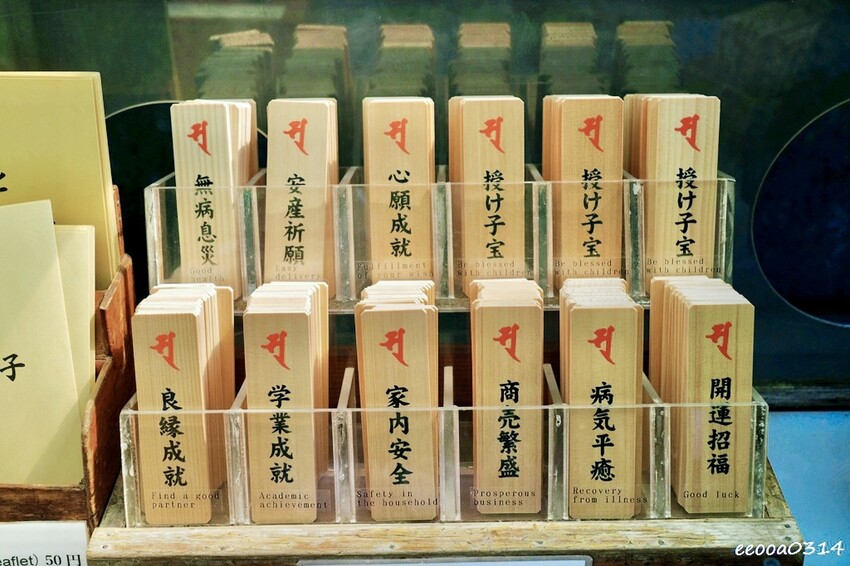 無病息災
Good
health
安産祈願
Easy
delivery
心願成就
Fulfillment
of your wish
授け子宝
Be blessed
with children
授け子宝
Be blessed
with children
授け子宝
Be blessed
with children
良縁成就
Find a good
partner
学業成就
Academic
achievement
家内安全
Safety in
the household
商売繁盛
Prosperous
business
病気平癒
Recovery
from illness
開運招福
Good luck
子
eaflet) 50円
eeooa0314